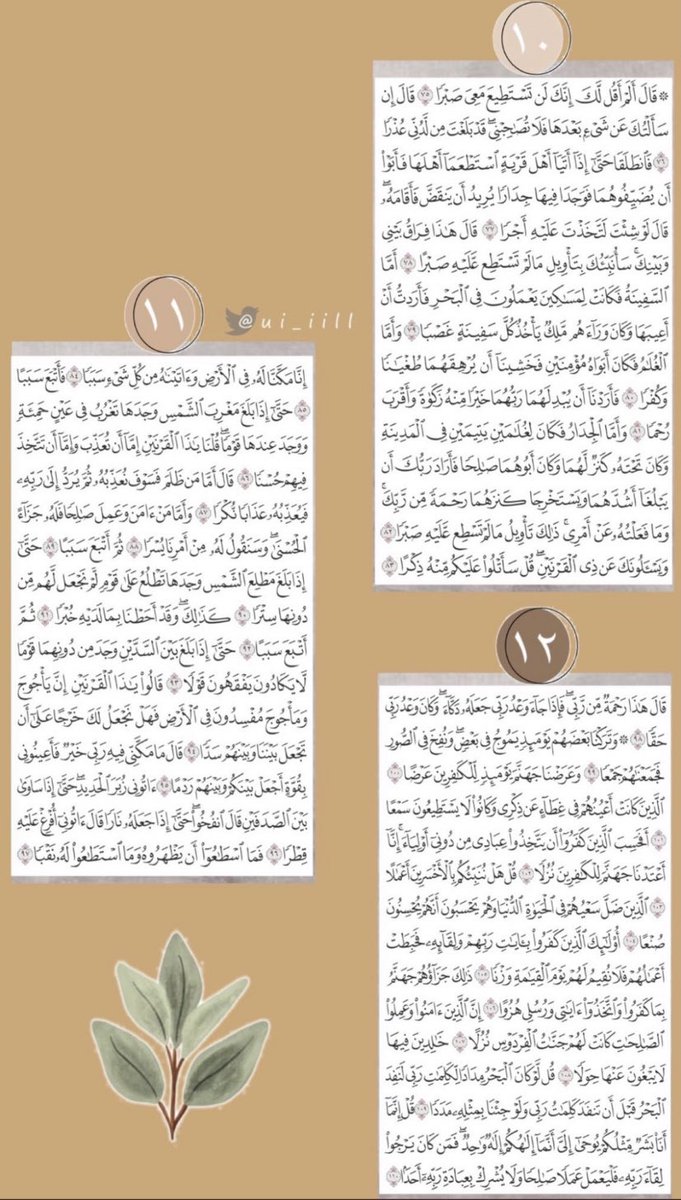 ١٠
۞ قَالَ أَلَمْ أَقُل لَّكَ إِنَّكَ لَن تَسْتَطِيعَ مَعِىَ صَبْرًا ٧٥ قَالَ إِن
سَأَلْتُكَ عَن شَىْءٍۭ بَعْدَهَا فَلَا تُصَـٰحِبْنِى ۖ قَدْ بَلَغْتَ مِن لَّدُنِّى عُذْرًا
٧٦ فَٱنطَلَقَا حَتَّىٰٓ إِذَآ أَتَيَآ أَهْلَ قَرْيَةٍ ٱسْتَطْعَمَآ أَهْلَهَا فَأَبَوْا۟
أَن يُضَيِّفُوهُمَا فَوَجَدَا فِيهَا جِدَارًا يُرِيدُ أَن يَنقَضَّ فَأَقَامَهُۥ ۖ
قَالَ لَوْ شِئْتَ لَتَّخَذْتَ عَلَيْهِ أَجْرًا ٧٧ قَالَ هَـٰذَا فِرَاقُ بَيْنِى
وَبَيْنِكَ ۚ سَأُنَبِّئُكَ بِتَأْوِيلِ مَا لَمْ تَسْتَطِع عَّلَيْهِ صَبْرًا ٧٨ أَمَّا
ٱلسَّفِينَةُ فَكَانَتْ لِمَسَـٰكِينَ يَعْمَلُونَ فِى ٱلْبَحْرِ فَأَرَدتُّ أَنْ
أَعِيبَهَا وَكَانَ وَرَآءَهُم مَّلِكٌ يَأْخُذُ كُلَّ سَفِينَةٍ غَصْبًا ٧٩ وَأَمَّا
ٱلْغُلَـٰمُ فَكَانَ أَبَوَاهُ مُؤْمِنَيْنِ فَخَشِينَآ أَن يُرْهِقَهُمَا طُغْيَـٰنًا
وَكُفْرًا ٨٠ فَأَرَدْنَآ أَن يُبْدِلَهُمَا رَبُّهُمَا خَيْرًا مِّنْهُ زَكَوٰةً وَأَقْرَبَ
رُحْمًا ٨١ وَأَمَّا ٱلْجِدَارُ فَكَانَ لِغُلَـٰمَيْنِ يَتِيمَيْنِ فِى ٱلْمَدِينَةِ
وَكَانَ تَحْتَهُۥ كَنزٌ لَّهُمَا وَكَانَ أَبُوهُمَا صَـٰلِحًا فَأَرَادَ رَبُّكَ أَن
يَبْلُغَآ أَشُدَّهُمَا وَيَسْتَخْرِجَا كَنزَهُمَا رَحْمَةً مِّن رَّبِّكَ ۚ
وَمَا فَعَلْتُهُۥ عَنْ أَمْرِى ۚ ذَٰلِكَ تَأْوِيلُ مَا لَمْ تَسْطِع عَّلَيْهِ صَبْرًا ٨٢
وَيَسْـَٔلُونَكَ عَن ذِى ٱلْقَرْنَيْنِ ۖ قُلْ سَأَتْلُوا۟ عَلَيْكُم مِّنْهُ ذِكْرًا ٨٣
١١
@ui_iill
إِنَّا مَكَّنَّا لَهُۥ فِى ٱلْأَرْضِ وَءَاتَيْنَـٰهُ مِن كُلِّ شَىْءٍ سَبَبًا ٨٤ فَأَتْبَعَ سَبَبًا
٨٥ حَتَّىٰٓ إِذَا بَلَغَ مَغْرِبَ ٱلشَّمْسِ وَجَدَهَا تَغْرُبُ فِى عَيْنٍ حَمِئَةٍ
وَوَجَدَ عِندَهَا قَوْمًا ۗ قُلْنَا يَـٰذَا ٱلْقَرْنَيْنِ إِمَّآ أَن تُعَذِّبَ وَإِمَّآ أَن تَتَّخِذَ
فِيهِمْ حُسْنًا ٨٦ قَالَ أَمَّا مَن ظَلَمَ فَسَوْفَ نُعَذِّبُهُۥ ثُمَّ يُرَدُّ إِلَىٰ رَبِّهِۦ
فَيُعَذِّبُهُۥ عَذَابًا نُّكْرًا ٨٧ وَأَمَّا مَنْ ءَامَنَ وَعَمِلَ صَـٰلِحًا فَلَهُۥ جَزَآءً
ٱلْحُسْنَىٰ ۖ وَسَنَقُولُ لَهُۥ مِنْ أَمْرِنَا يُسْرًا ٨٨ ثُمَّ أَتْبَعَ سَبَبًا ٨٩ حَتَّىٰٓ
إِذَا بَلَغَ مَطْلِعَ ٱلشَّمْسِ وَجَدَهَا تَطْلُعُ عَلَىٰ قَوْمٍ لَّمْ نَجْعَل لَّهُم مِّن
دُونِهَا سِتْرًا ٩٠ كَذَٰلِكَ ۖ وَقَدْ أَحَطْنَا بِمَا لَدَيْهِ خُبْرًا ٩١ ثُمَّ
أَتْبَعَ سَبَبًا ٩٢ حَتَّىٰٓ إِذَا بَلَغَ بَيْنَ ٱلسَّدَّيْنِ وَجَدَ مِن دُونِهِمَا قَوْمًا
لَّا يَكَادُونَ يَفْقَهُونَ قَوْلًا ٩٣ قَالُوا۟ يَـٰذَا ٱلْقَرْنَيْنِ إِنَّ يَأْجُوجَ
وَمَأْجُوجَ مُفْسِدُونَ فِى ٱلْأَرْضِ فَهَلْ نَجْعَلُ لَكَ خَرْجًا عَلَىٰٓ أَن
تَجْعَلَ بَيْنَنَا وَبَيْنَهُمْ سَدًّا ٩٤ قَالَ مَا مَكَّنِّى فِيهِ رَبِّى خَيْرٌ فَأَعِينُونِى
بِقُوَّةٍ أَجْعَلْ بَيْنَكُمْ وَبَيْنَهُمْ رَدْمًا ٩٥ ءَاتُونِى زُبَرَ ٱلْحَدِيدِ ۖ حَتَّىٰٓ إِذَا سَاوَىٰ
بَيْنَ ٱلصَّدَفَيْنِ قَالَ ٱنفُخُوا۟ ۖ حَتَّىٰٓ إِذَا جَعَلَهُۥ نَارًا قَالَ ءَاتُونِىٓ أُفْرِغْ عَلَيْهِ
قِطْرًا ٩٦ فَمَا ٱسْطَـٰعُوٓا۟ أَن يَظْهَرُوهُ وَمَا ٱسْتَطَـٰعُوا۟ لَهُۥ نَقْبًا ٩٧
١٢
قَالَ هَـٰذَا رَحْمَةٌ مِّن رَّبِّى ۖ فَإِذَا جَآءَ وَعْدُ رَبِّى جَعَلَهُۥ دَكَّآءَ ۖ وَكَانَ وَعْدُ رَبِّى
حَقًّا ٩٨ ۞ وَتَرَكْنَا بَعْضَهُمْ يَوْمَئِذٍ يَمُوجُ فِى بَعْضٍ ۖ وَنُفِخَ فِى ٱلصُّورِ
فَجَمَعْنَـٰهُمْ جَمْعًا ٩٩ وَعَرَضْنَا جَهَنَّمَ يَوْمَئِذٍ لِّلْكَـٰفِرِينَ عَرْضًا ١٠٠
ٱلَّذِينَ كَانَتْ أَعْيُنُهُمْ فِى غِطَآءٍ عَن ذِكْرِى وَكَانُوا۟ لَا يَسْتَطِيعُونَ سَمْعًا
١٠١ أَفَحَسِبَ ٱلَّذِينَ كَفَرُوٓا۟ أَن يَتَّخِذُوا۟ عِبَادِى مِن دُونِىٓ أَوْلِيَآءَ ۚ إِنَّآ
أَعْتَدْنَا جَهَنَّمَ لِلْكَـٰفِرِينَ نُزُلًا ١٠٢ قُلْ هَلْ نُنَبِّئُكُم بِٱلْأَخْسَرِينَ أَعْمَـٰلًا
١٠٣ ٱلَّذِينَ ضَلَّ سَعْيُهُمْ فِى ٱلْحَيَوٰةِ ٱلدُّنْيَا وَهُمْ يَحْسَبُونَ أَنَّهُمْ يُحْسِنُونَ
صُنْعًا ١٠٤ أُو۟لَـٰٓئِكَ ٱلَّذِينَ كَفَرُوا۟ بِـَٔايَـٰتِ رَبِّهِمْ وَلِقَآئِهِۦ فَحَبِطَتْ
أَعْمَـٰلُهُمْ فَلَا نُقِيمُ لَهُمْ يَوْمَ ٱلْقِيَـٰمَةِ وَزْنًا ١٠٥ ذَٰلِكَ جَزَآؤُهُمْ جَهَنَّمُ
بِمَا كَفَرُوا۟ وَٱتَّخَذُوٓا۟ ءَايَـٰتِى وَرُسُلِى هُزُوًا ١٠٦ إِنَّ ٱلَّذِينَ ءَامَنُوا۟ وَعَمِلُوا۟
ٱلصَّـٰلِحَـٰتِ كَانَتْ لَهُمْ جَنَّـٰتُ ٱلْفِرْدَوْسِ نُزُلًا ١٠٧ خَـٰلِدِينَ فِيهَا
لَا يَبْغُونَ عَنْهَا حِوَلًا ١٠٨ قُل لَّوْ كَانَ ٱلْبَحْرُ مِدَادًا لِّكَلِمَـٰتِ رَبِّى لَنَفِدَ
ٱلْبَحْرُ قَبْلَ أَن تَنفَدَ كَلِمَـٰتُ رَبِّى وَلَوْ جِئْنَا بِمِثْلِهِۦ مَدَدًا ١٠٩ قُلْ إِنَّمَآ
أَنَا۠ بَشَرٌ مِّثْلُكُمْ يُوحَىٰٓ إِلَىَّ أَنَّمَآ إِلَـٰهُكُمْ إِلَـٰهٌ وَٰحِدٌ ۖ فَمَن كَانَ يَرْجُوا۟
لِقَآءَ رَبِّهِۦ فَلْيَعْمَلْ عَمَلًا صَـٰلِحًا وَلَا يُشْرِكْ بِعِبَادَةِ رَبِّهِۦٓ أَحَدًۢا ١١٠